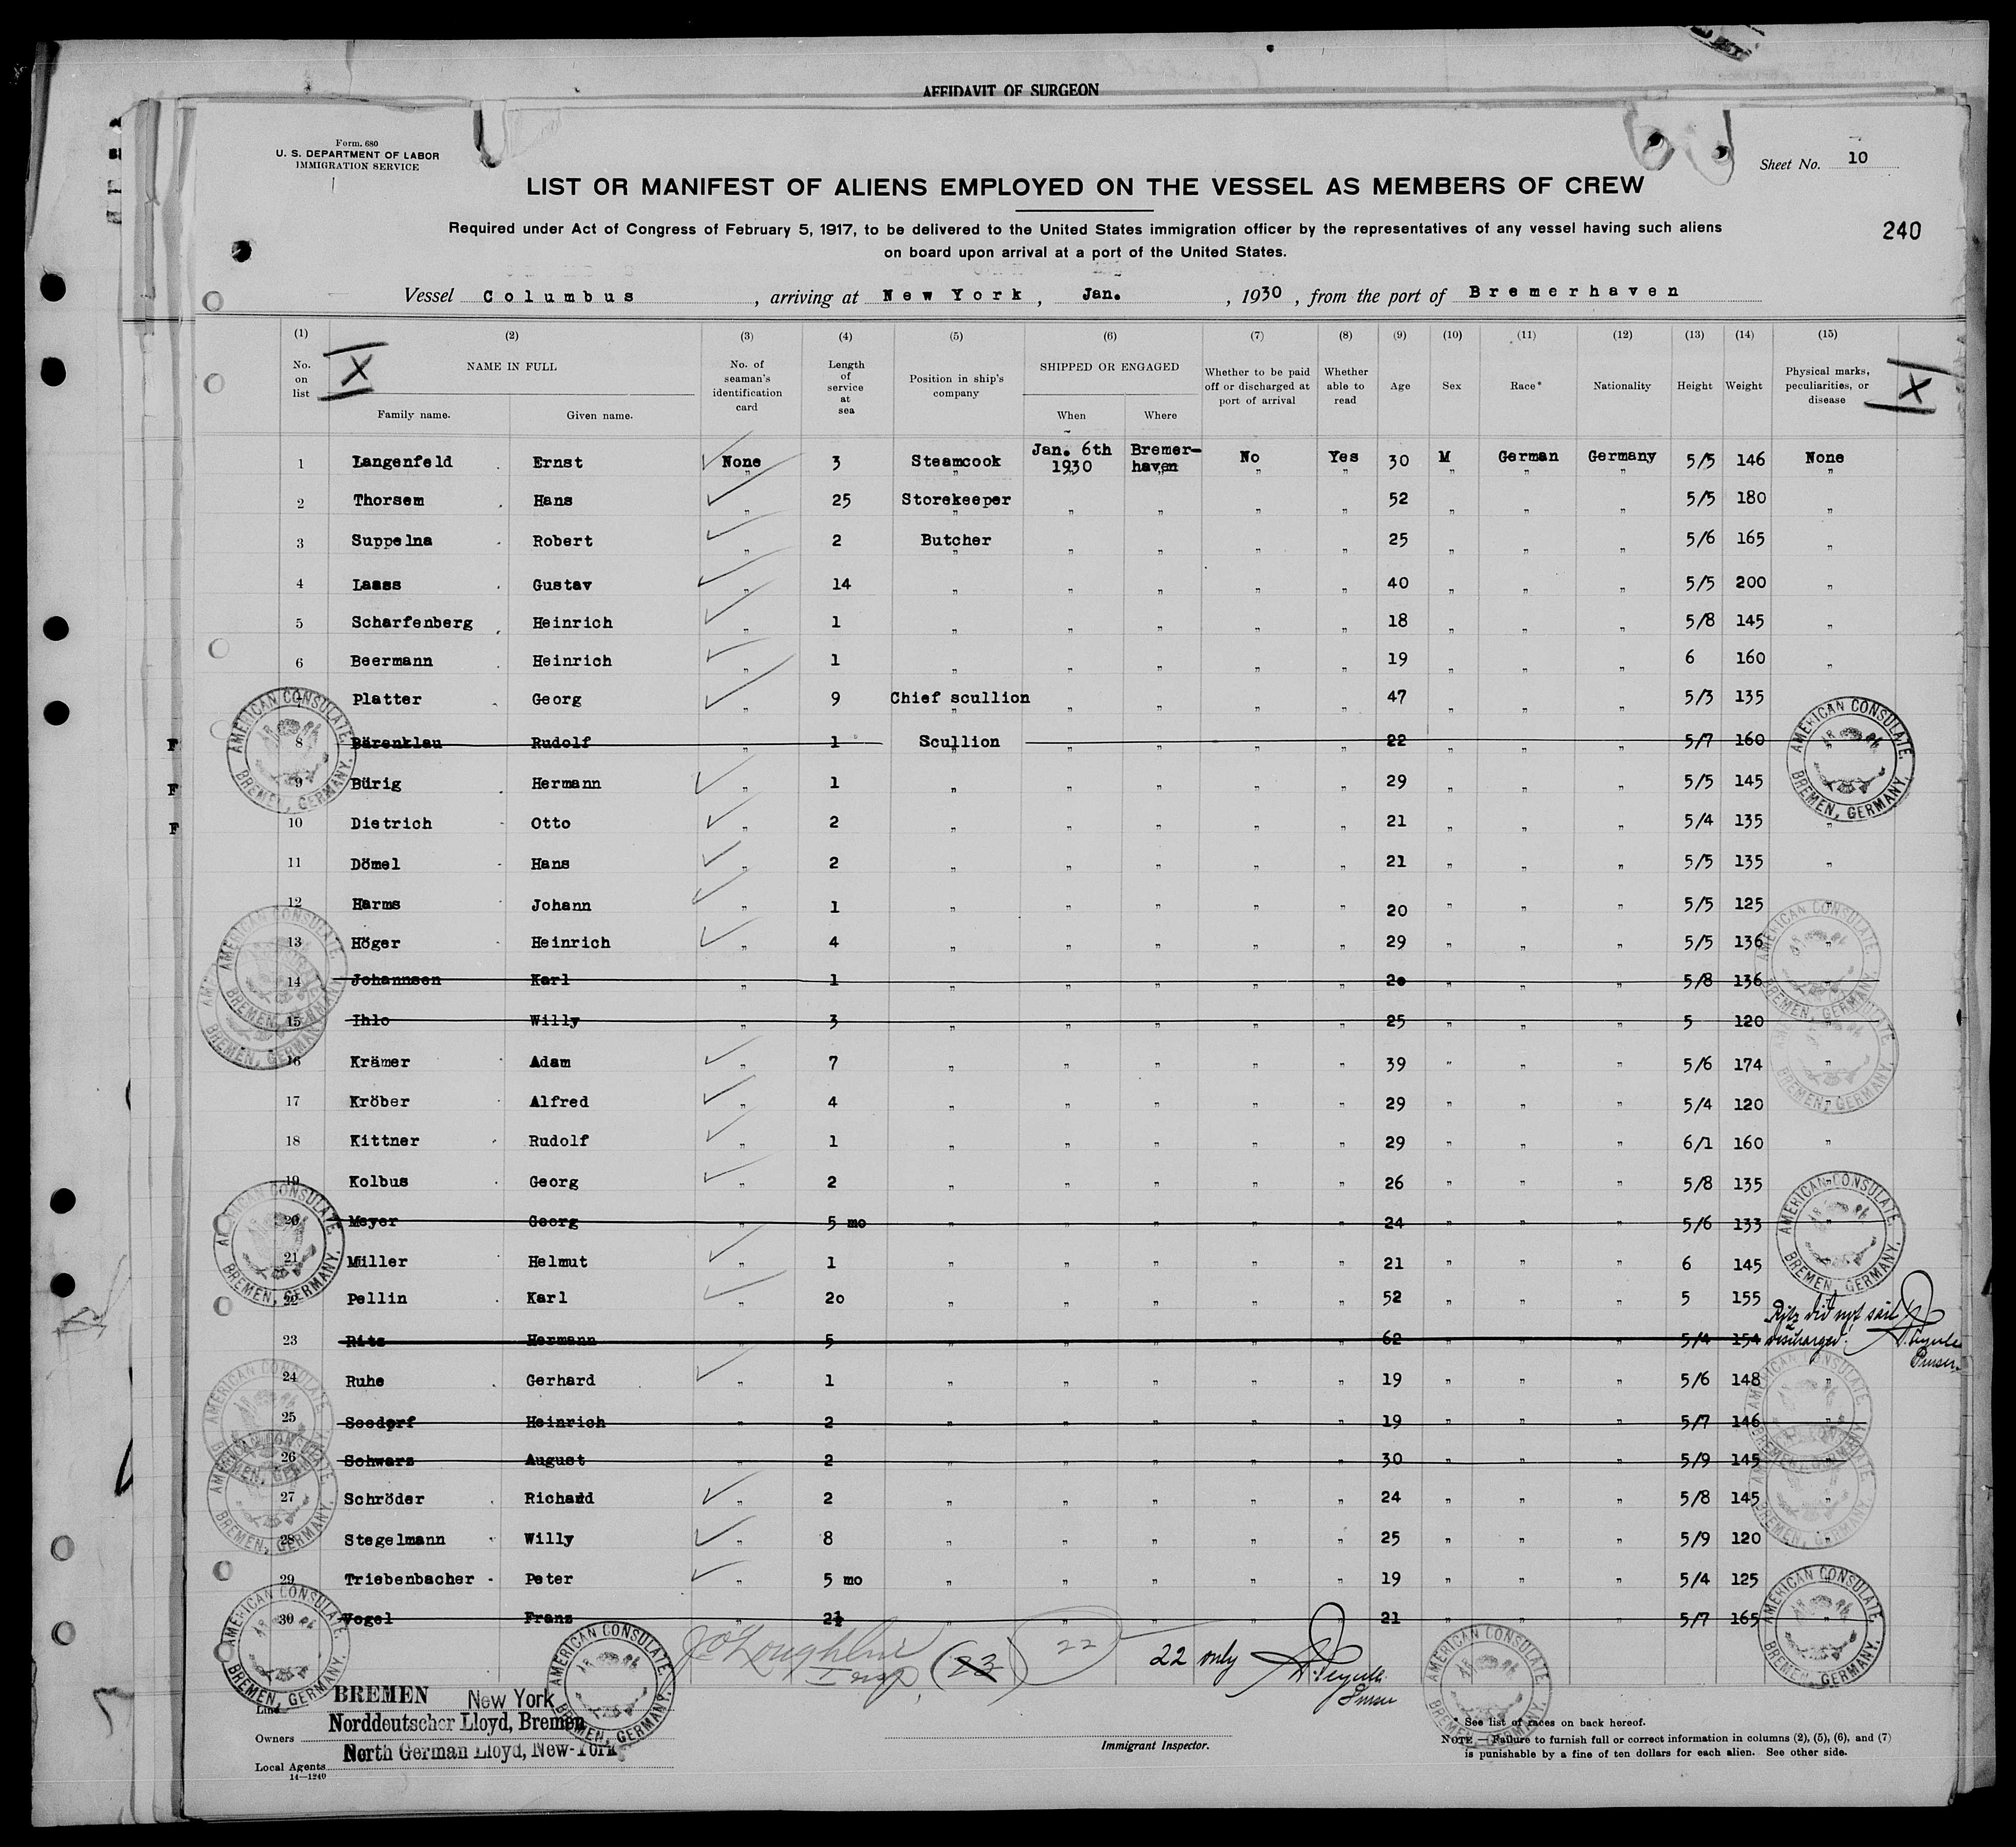 AFFIDAVIT OF SURGEON
Form. 680
U. S. DEPARTMENT OF LABOR
IMMIGRATION SERVICE
Sheet No. 10
LIST OR MANIFEST OF ALIENS EMPLOYED ON THE VESSEL AS MEMBERS OF CREW
Required under Act of Congress of February 5, 1917, to be delivered to the United States immigration officer by the representatives of any vessel having such aliens
on board upon arrival at a port of the United States.
240
Vessel Columbus, arriving at New York, Jan., 1930, from the port of Bremerhaven
(1) (2) (3) (4) (5) (6) (7) (8) (9) (10) (11) (12) (13) (14) (15)
No. on list X NAME IN FULL Family name. Given name. No. of seaman's identification card Length of service at sea Position in ship's company SHIPPED OR ENGAGED When Where Whether to be paid off or discharged at port of arrival Whether able to read Age Sex Race* Nationality Height Weight Physical marks, peculiarities, or disease X
1 Langenfeld Ernst None 3 Steamcook Jan. 6th 1930 Bremer-haven No Yes 30 M German Germany 5/5 146 None
2 Thorsem Hans " 25 Storekeeper " " " " 52 " " " 5/5 180 "
3 Suppelna Robert " 2 Butcher " " " " 25 " " " 5/6 165 "
4 Laass Gustav " 14 " " " " " 40 " " " 5/5 200 "
5 Scharfenberg Heinrich " 1 " " " " " 18 " " " 5/8 145 "
6 Beermann Heinrich " 1 " " " " " 19 " " " 6 160 "
7 Platter Georg " 9 Chief scullion " " " " 47 " " " 5/3 135
F 8 Bärenklau Rudolf " 1 Scullion " " " " 22 " " " 5/7 160
F 9 Bürig Hermann " 1 " " " " " 29 " " " 5/5 145
F 10 Dietrich Otto " 2 " " " " " 21 " " " 5/4 135 "
11 Dömel Hans " 2 " " " " " 21 " " " 5/5 135 "
12 Harms Johann " 1 " " " " " 20 " " " 5/5 125 "
13 Höger Heinrich " 4 " " " " " 29 " " " 5/5 136 "
14 Johannsen Karl " 1 " " " " " 20 " " " 5/8 136
15 Ihlo Willy " 3 " " " " " 25 " " " 5 120 "
16 Krämer Adam " 7 " " " " " 39 " " " 5/6 174 "
17 Kröber Alfred " 4 " " " " " 29 " " " 5/4 120 "
18 Kittner Rudolf " 1 " " " " " 29 " " " 6/1 160 "
19 Kolbus Georg " 2 " " " " " 26 " " " 5/8 135 "
20 Meyer Georg " 5 mo " " " " " 24 " " " 5/6 133 "
21 Miller Helmut " 1 " " " " " 21 " " " 6 145
22 Pellin Karl " 20 " " " " " 52 " " " 5 155 "
Ritz did not sail
23 Ritz Hermann 5 " " " " " 62 " " " 5/4 154 discharged.
Purser.
24 Ruhe Gerhard " 1 " " " " " 19 " " " 5/6 148 "
25 Seedorf Heinrich " 2 " " " " " 19 " " " 5/7 146 "
26 Schwarz August " 2 " " " " " 30 " " " 5/9 145
27 Schröder Richard " 2 " " " " " 24 " " " 5/8 145 "
28 Stegelmann Willy " 8 " " " " " 25 " " " 5/9 120 "
29 Triebenbacher Peter " 5 mo " " " " " 19 " " " 5/4 125 "
30 Vogel Franz " 2½ " " " " " 21 " " " 5/7 165 "
AMERICAN CONSULATE, BREMEN, GERMANY.
J O'Loughlin
Insp. (23) 22 22 only
Line BREMEN New York
Owners Norddeutscher Lloyd, Bremen
Local Agents North German Lloyd, New-York
14—1240
Immigrant Inspector.
* See list of races on back hereof.
NOTE.—Failure to furnish full or correct information in columns (2), (5), (6), and (7)
is punishable by a fine of ten dollars for each alien. See other side.